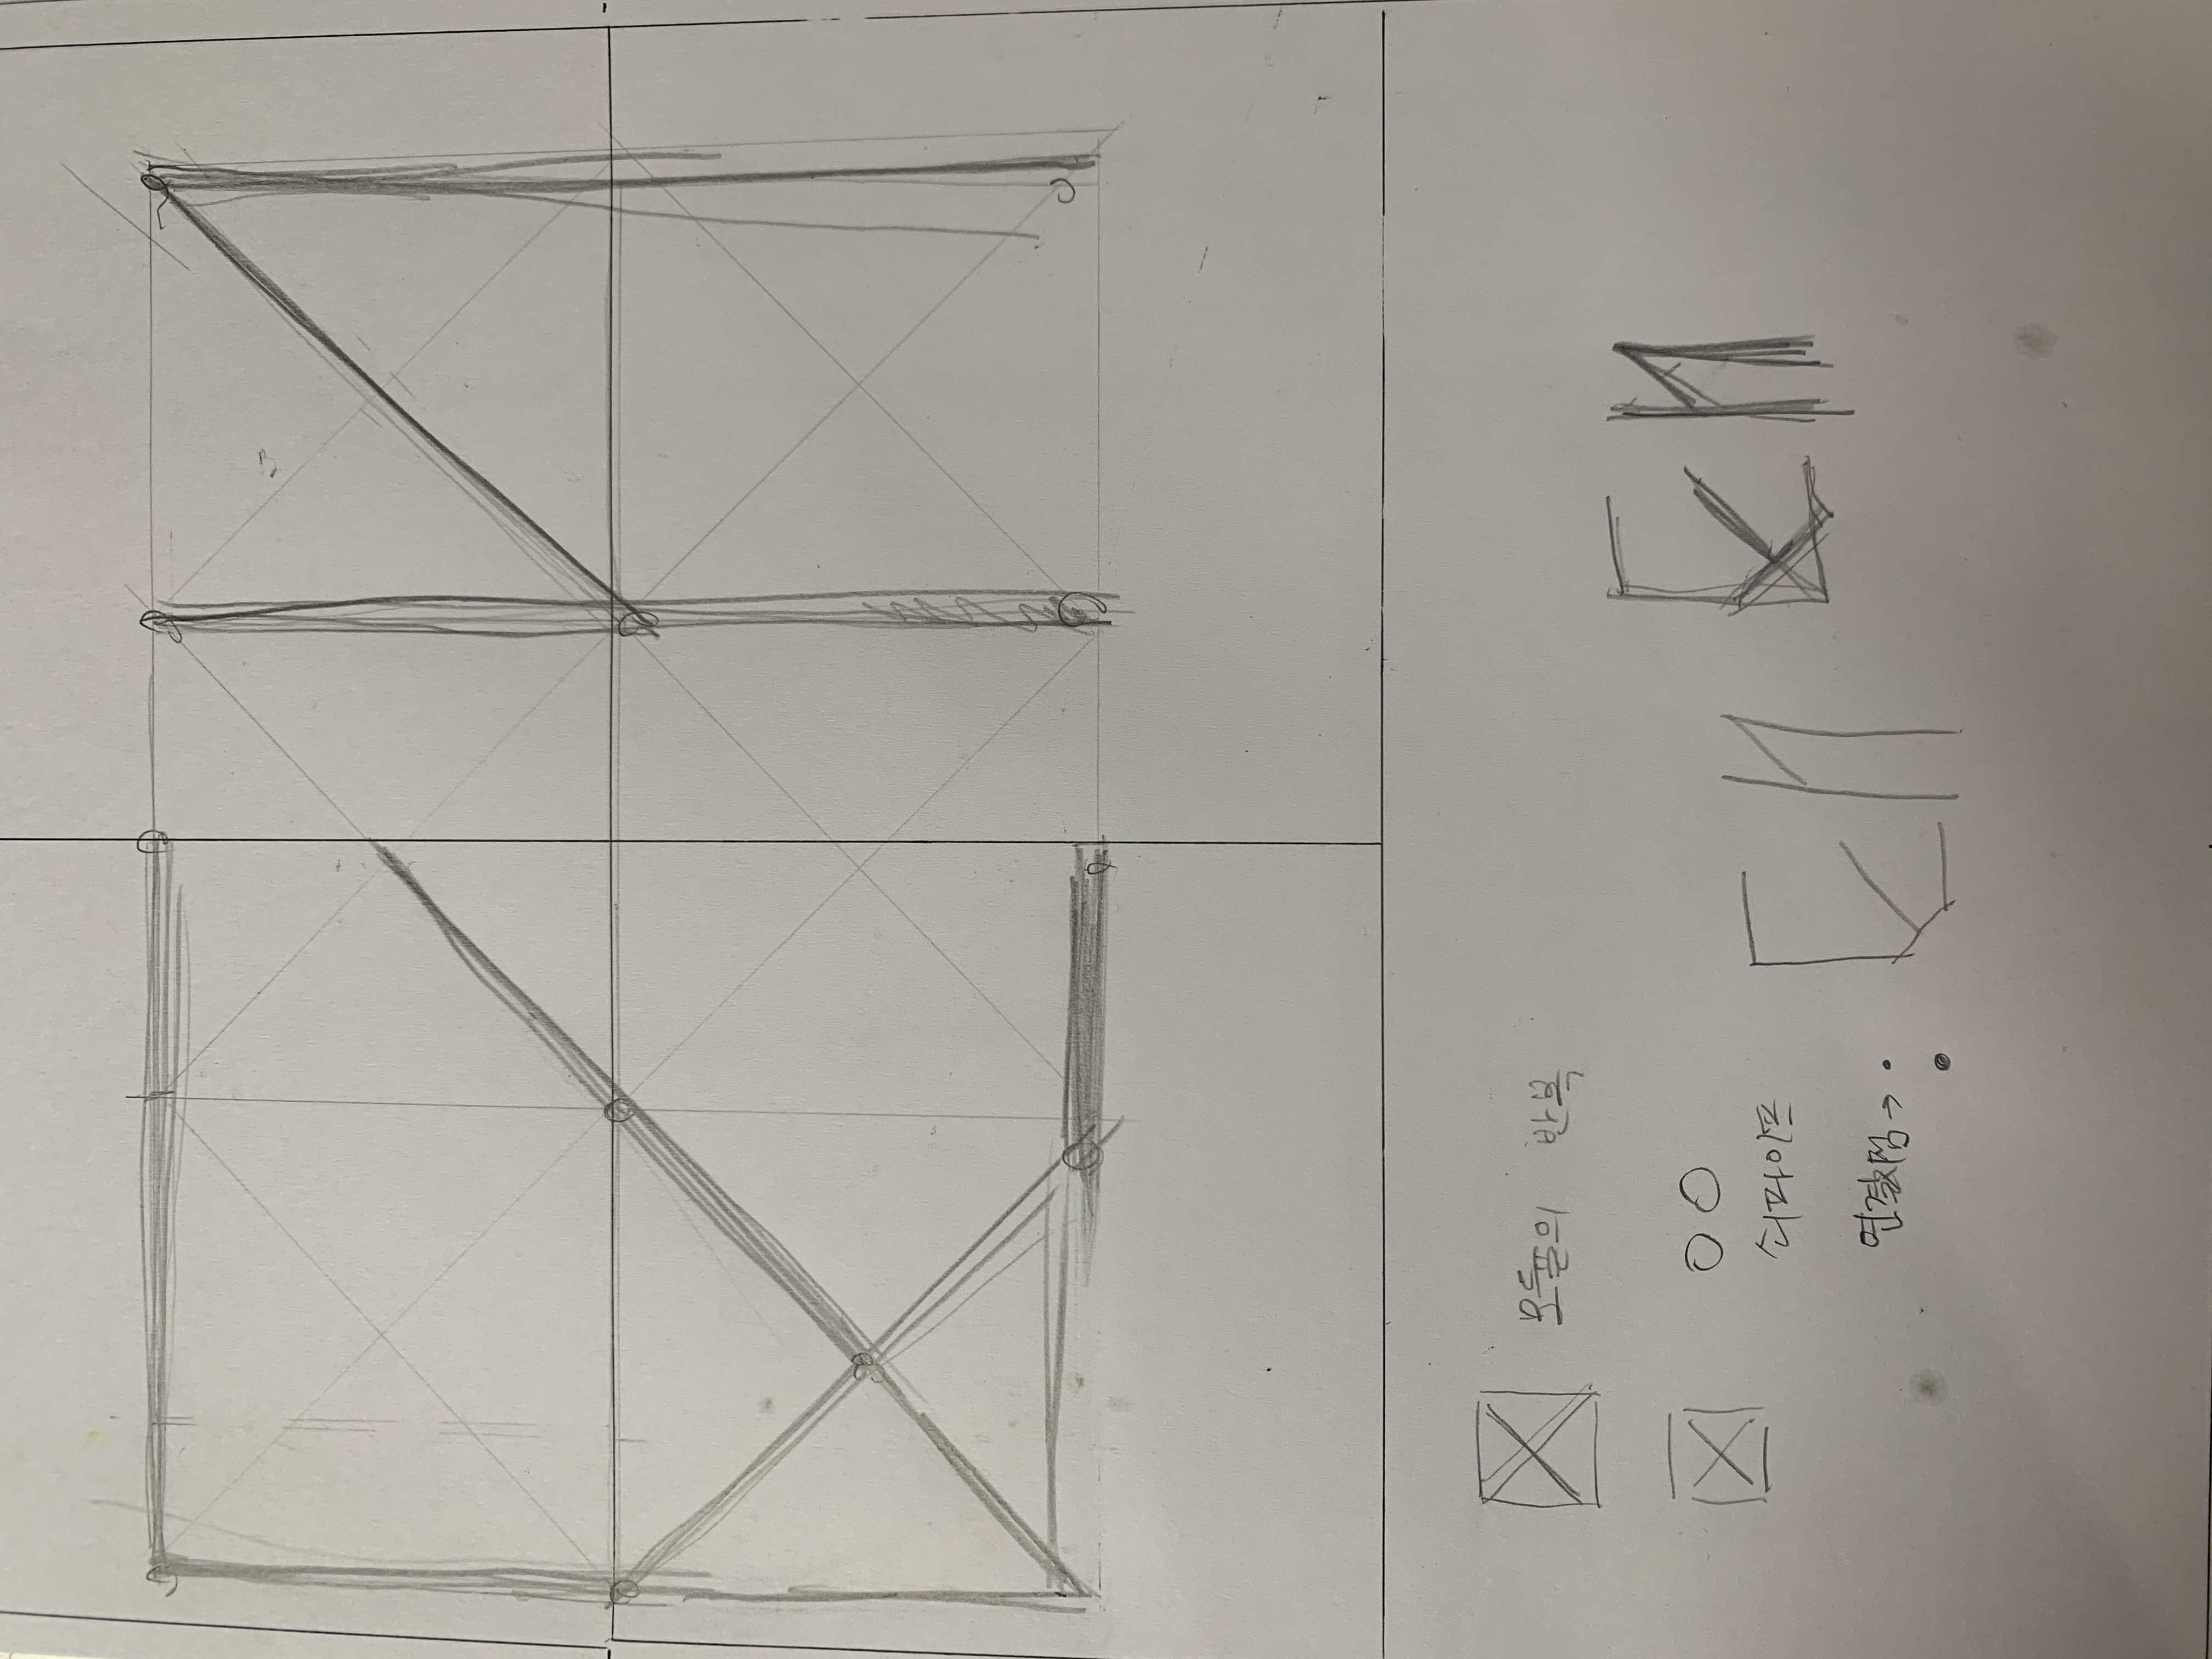 모듈의 반복
쇠파이프
연결지점 →